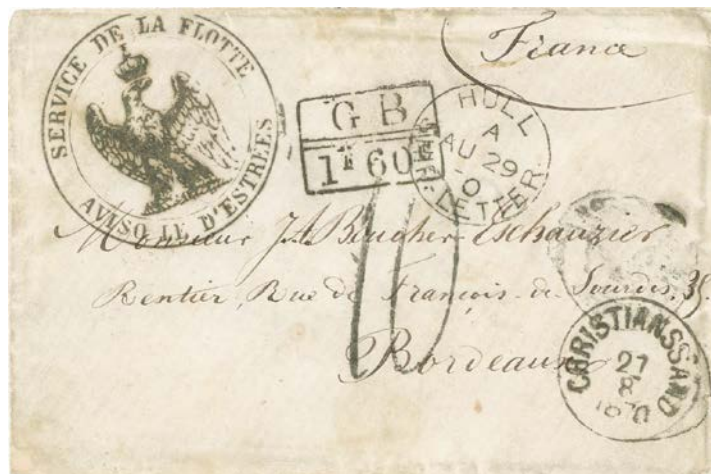 France
SERVICE DE LA FLOTTE
AVISO LE D'ESTRÉES
GB
1F 60c
HULL
A
AU 29
0
SHIP-LETTER
10
Monsieur J.A. Boucher Eschauzier
Rentier, Rue de François-de-Sourdis, 35.
Bordeaux
CHRISTIANSSAND
27
8
1870